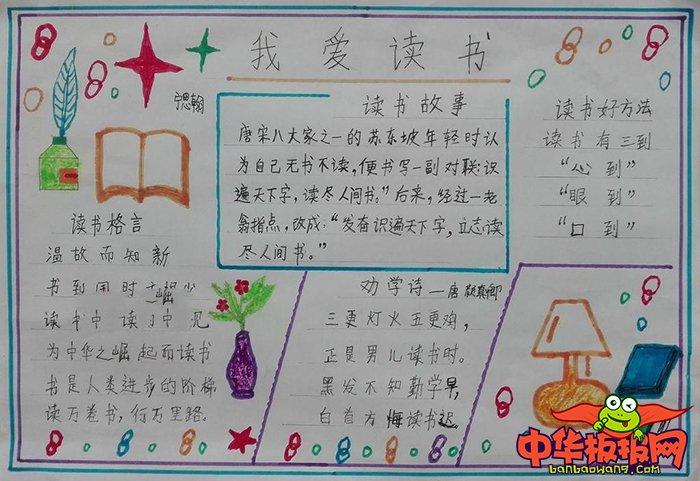 我爱读书
读书故事
唐宋八大家之一的苏东坡年轻时认
为自己无书不读，便书写一副对联：识
遍天下字，读尽人间书。”后来，经过一老
翁指点，改成：“发奋识遍天下字，立志读
尽人间书。”
读书好方法
读书有三到
“心到”
“眼到”
“口到”
读书格言
温故而知新
书到用时 少
读书中读 中见
为中华之崛起而读书
书是人类进步的阶梯
读万卷书，行万里路。
劝学诗——唐 颜真卿
三更灯火五更鸡，
正是男儿读书时。
黑发不知勤学早，
白首方悔读书迟。
中华板报网
banbaowang.com